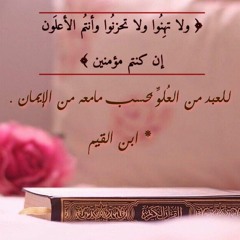 ﴿ ولا تهنُوا ولا تحزنُوا وأنتمُ الأعلَون
إن كنتم مؤمنين ﴾
للعبد من العُلوِّ بحسب مامعه من الإيمان .
* ابن القيم
القرآن الكريم